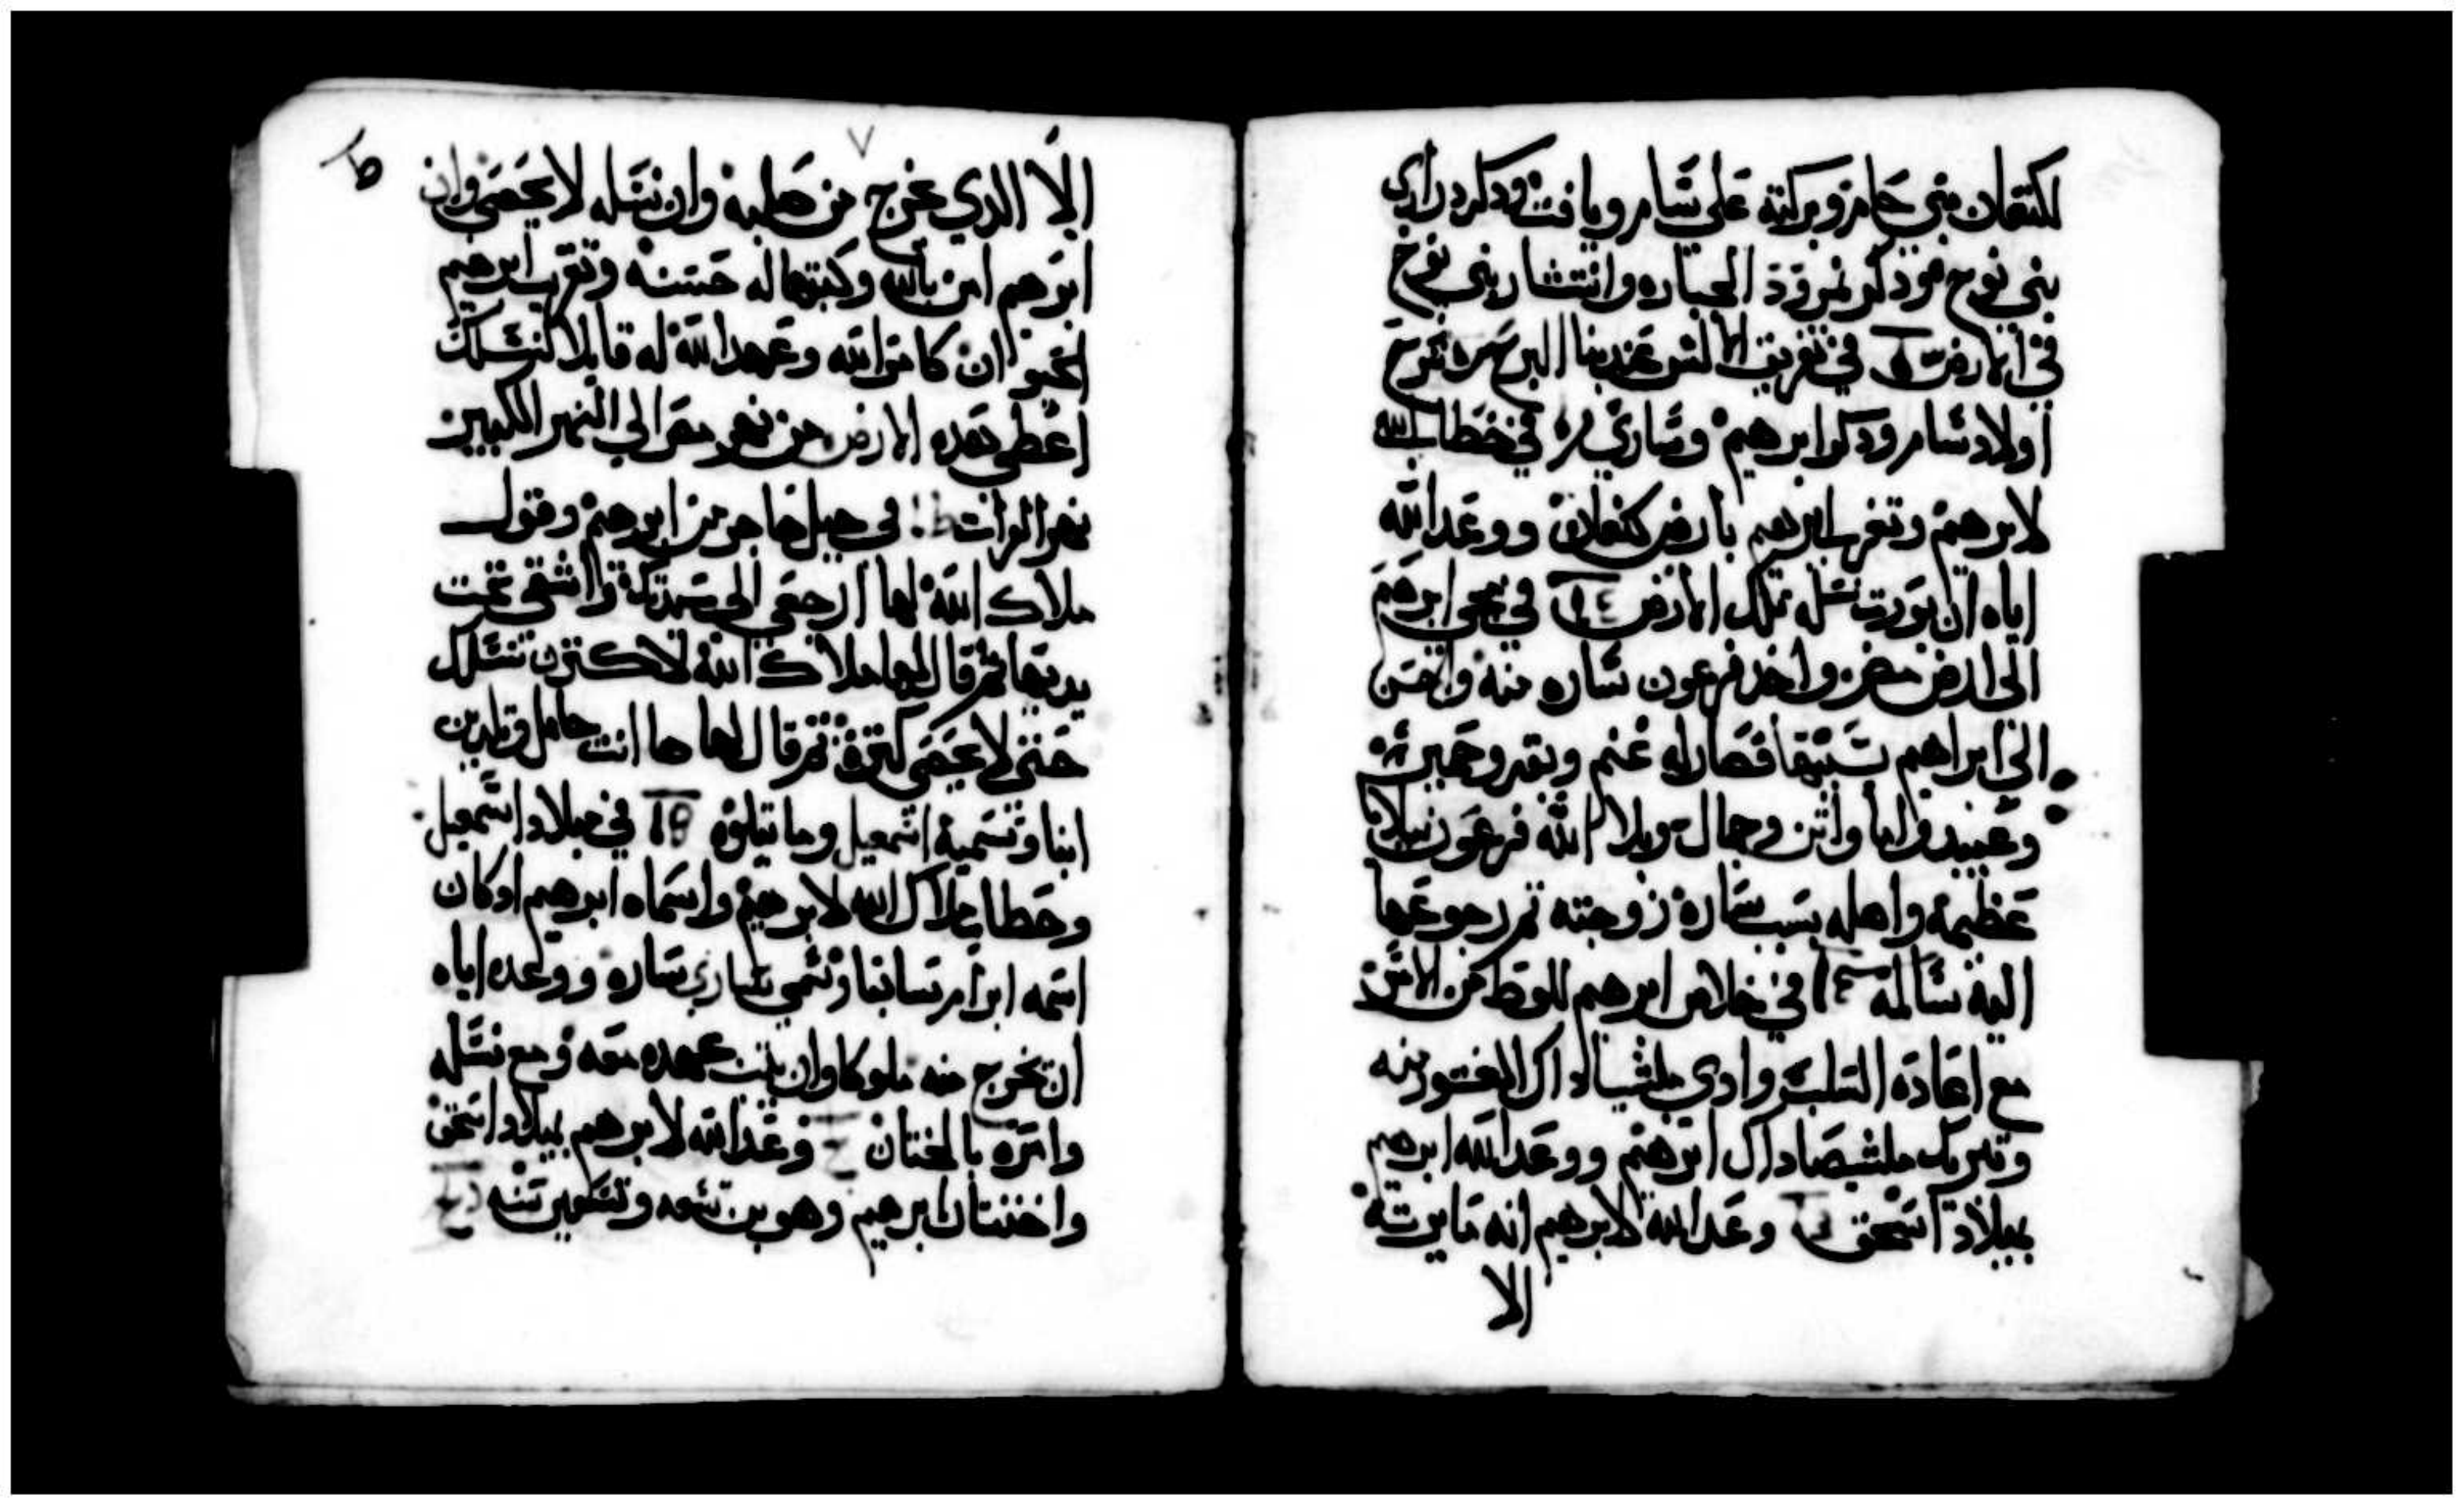 لكنعان بني حام وبركته على سام ويافت ودكر دراري
بني نوح ودكر نمرود الجباره وانتشار بني نوح
في الارض في تفريق الالسن عند بنا البرج شرح
اولاد سام ودكر ابرهيم وساري في خطاب الله
لابرهيم وتغرب ابرهيم بارض كنعان ووعد الله
اياه ان يورت نسله تلك الارض في مجي ابرهيم
الى ارض مصر واخد فرعون ساره منه واحسن
الى ابراهيم بسببها فصار له غنم وبقر وحمير
وعبيد واما واتن وجمال وبلا الله فرعون ببلايا
عظيمه واهله بسبب ساره زوجته تم رجوعها
اليه سالمه في خلاص ابرهيم للوط من الاسر
مع اعادة السلب وادي ملشيساداك العشور منه
وتبريك ملشيصاداك ابرهيم ووعد الله ابرهيم
بميلاد اسحق وعد الله لابرهيم انه ما يرته
الا
٧
الا الدي يخرج من صلبه وان نسله لا يحصى وان
ابرهيم امن بالله وكتبها له حسنه وتقريب ابرهيم
وعهد الله له قايلا لنسلك
اعطي هده الارض من نهر مصر الى النهر الكبير
نهر الفرات في حبل هاجر من ابرهيم وقول
ملاك الله لها ارجعي الى سيدتك واشقي تحت
يديها تم قال لها ملاك الله لاكترن نسلك
حتى لا يحصى كترة تم قال لها ها انت حامل وتلدين
ابنا وتسميه اسمعيل وما يتلوه في ميلاد اسمعيل
وخطاب ملاك الله لابرهيم واسماه ابرهيم اد كان
اسمه ابرام وتسمي ساري ساره ووعده اياه
ان يخرج منه ملوكا وان يتبت عهده معه ومع نسله
وامره بالختان وعد الله لابرهيم بميلاد اسحق
واختتان ابرهيم وهو بن تسعه وتسعين سنه